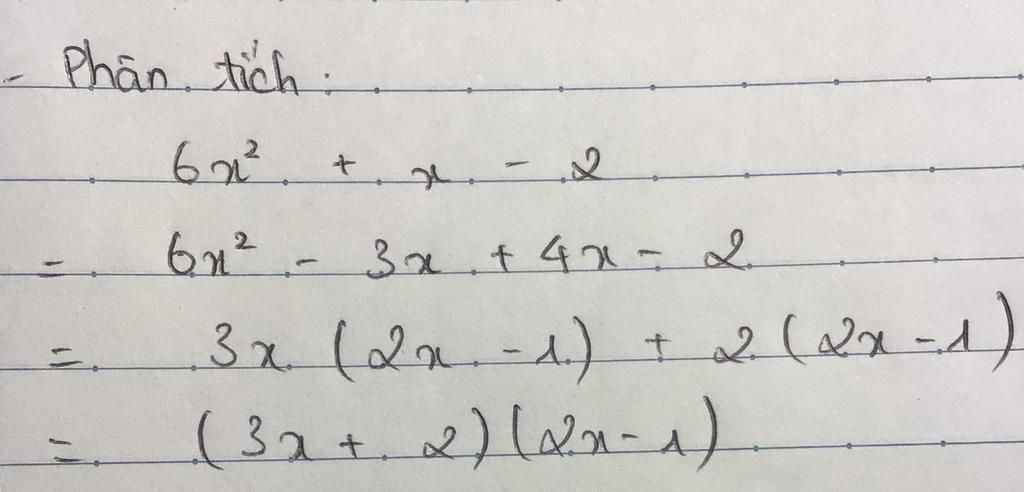 - Phân tích :
6x² + x - 2
= 6x² - 3x + 4x - 2
= 3x (2x - 1) + 2 (2x - 1)
= (3x + 2)(2x - 1)